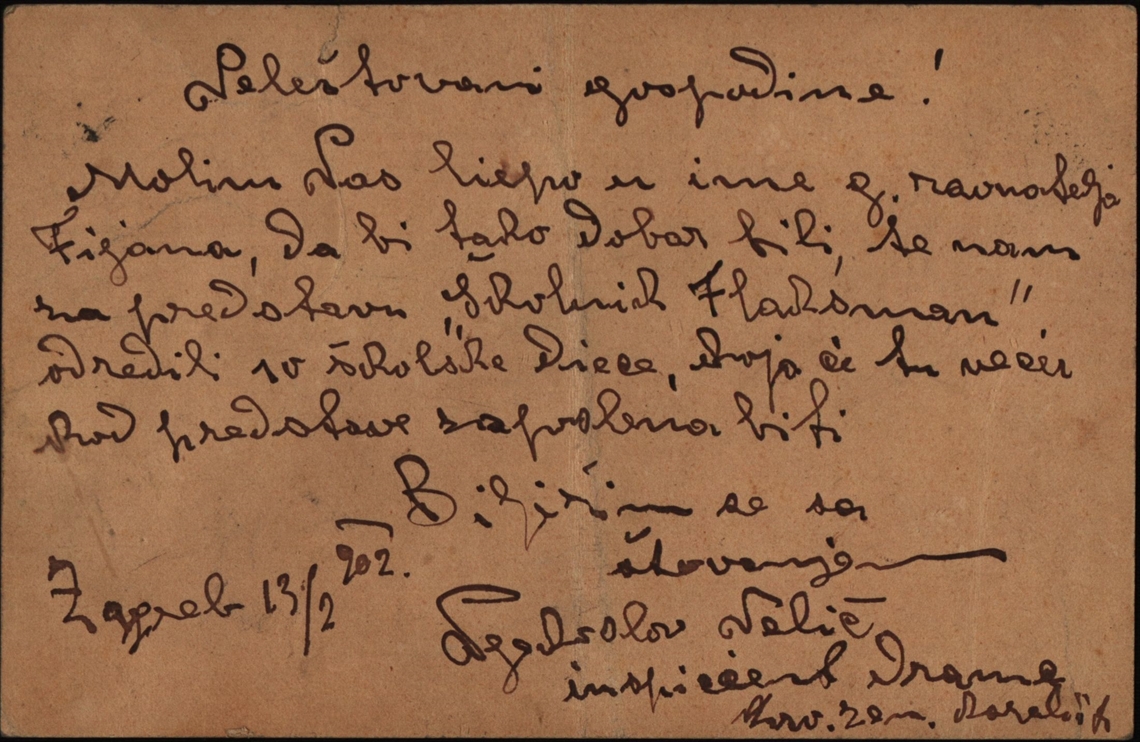 Veleštovani gospodine!
Molim Vas liepo u ime g. ravnatelja
Fijana, da bi tako dobar bili, te nam
za predstavu „Školnik Flaksman"
odredili 10 školske diece, koja će tu večer
kod predstave zaposlena biti
Biljižim se sa
štovanjem
Zagreb 13/2 902.
Velić
inspicient drame
hrv. zem. kazališta